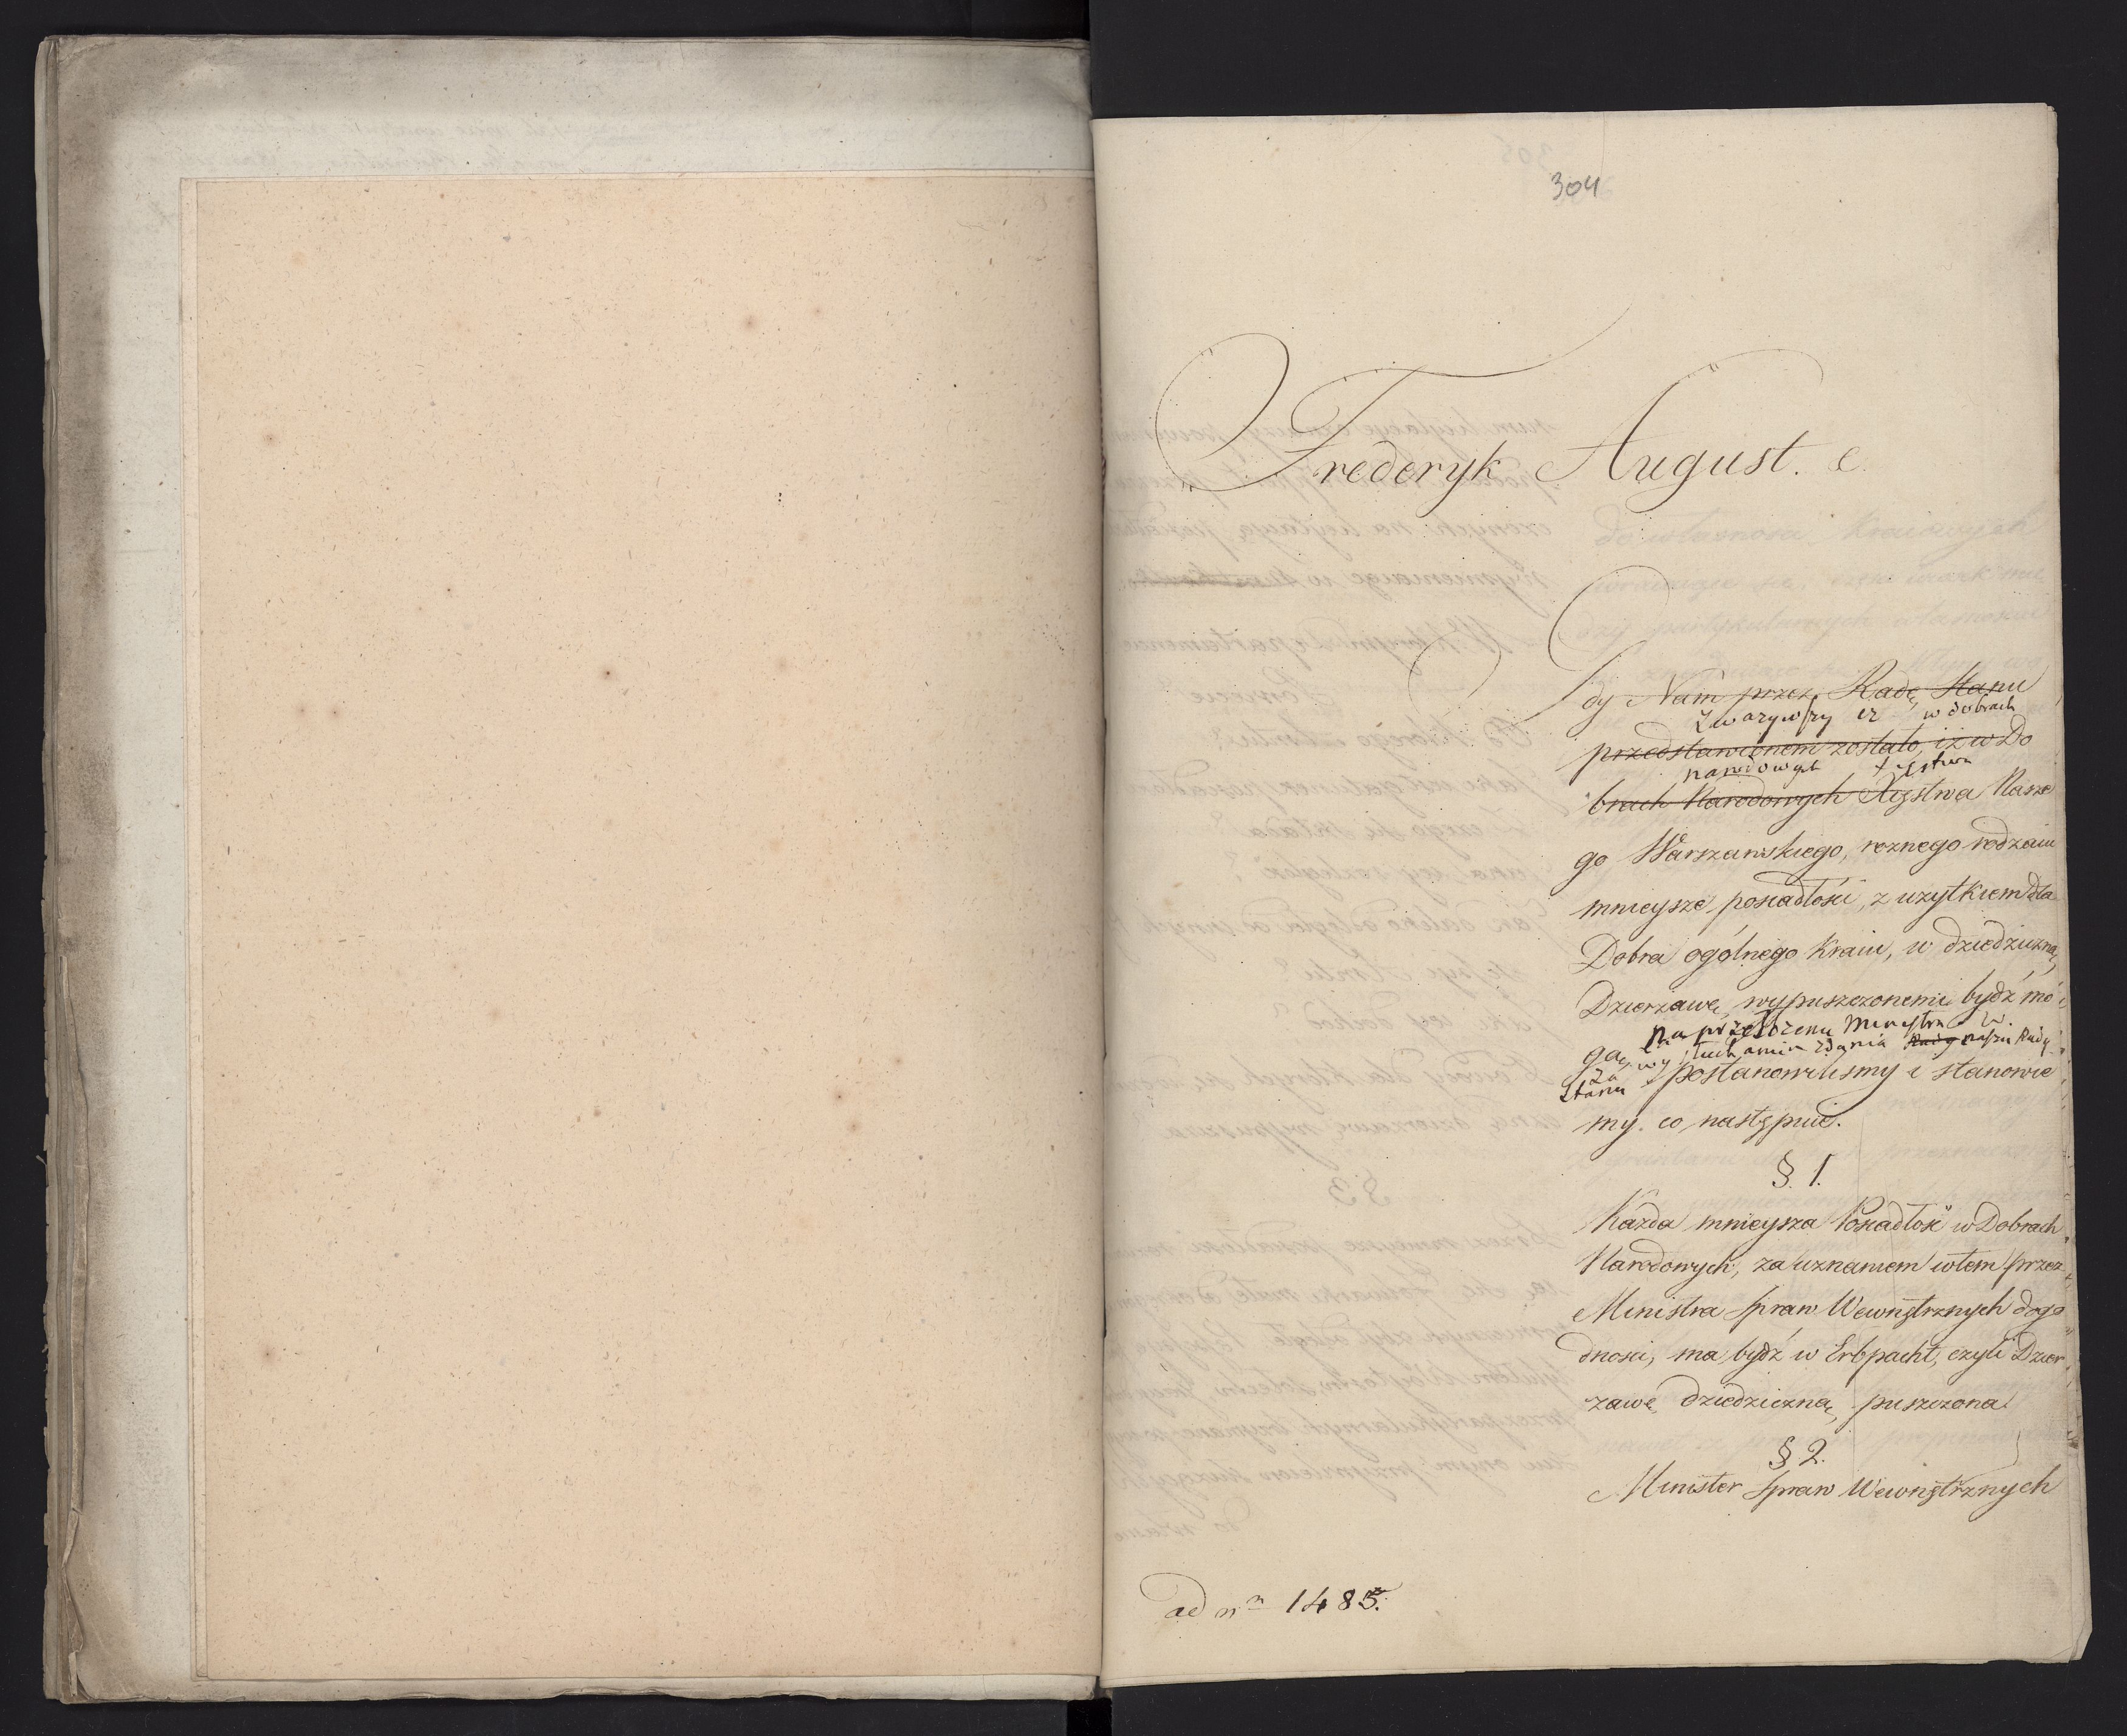 304
Fryderyk August. &.
Gdy Nam przez Radę Stanu
Zwarzywszy iz w dobrach
przedstawionem zostało, iz w Do
narodowych Xięstwa
brach Narodowych Xięstwa Nasze
go Warszawskiego, roznego rodzaiu
mnieysze posiadłości, z uzytkiem dla
Dobra ogólnego Kraiu, w dziedziczną
Dzierzawę, wypuszczonemi bydź mo
na przełozenie Ministra S. W.
gą, wysłuchania zdania Rady naszei Rady
za
Stanu postanowilismy i stanowie
my. co następuie.
§. 1.
Kazda mnieysza Posiadłość w Dobrach
Narodowych, za uznaniem w tem przez
Ministra Spraw Wewnętrznych dogo
dnosci, ma bydź w Erbpacht, czyli Dzier
zawę dziedziczną puszczona.
§ 2.
Minister Spraw Wewnętrznych
ad n<sup>m</sup> 1485.